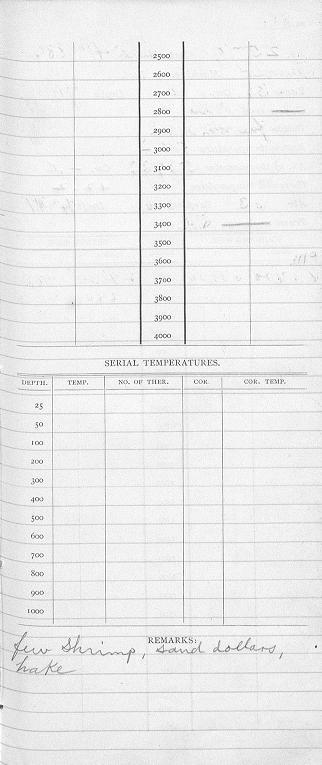 2500
2600
2700
2800
2900
3000
3100
3200
3300
3400
3500
3600
3700
3800
3900
4000
SERIAL TEMPERATURES.
DEPTH. TEMP. NO. OF THER. COR. COR. TEMP.
25
50
100
200
300
400
500
600
700
800
900
1000
REMARKS:
few shrimp, sand dollars,
hake